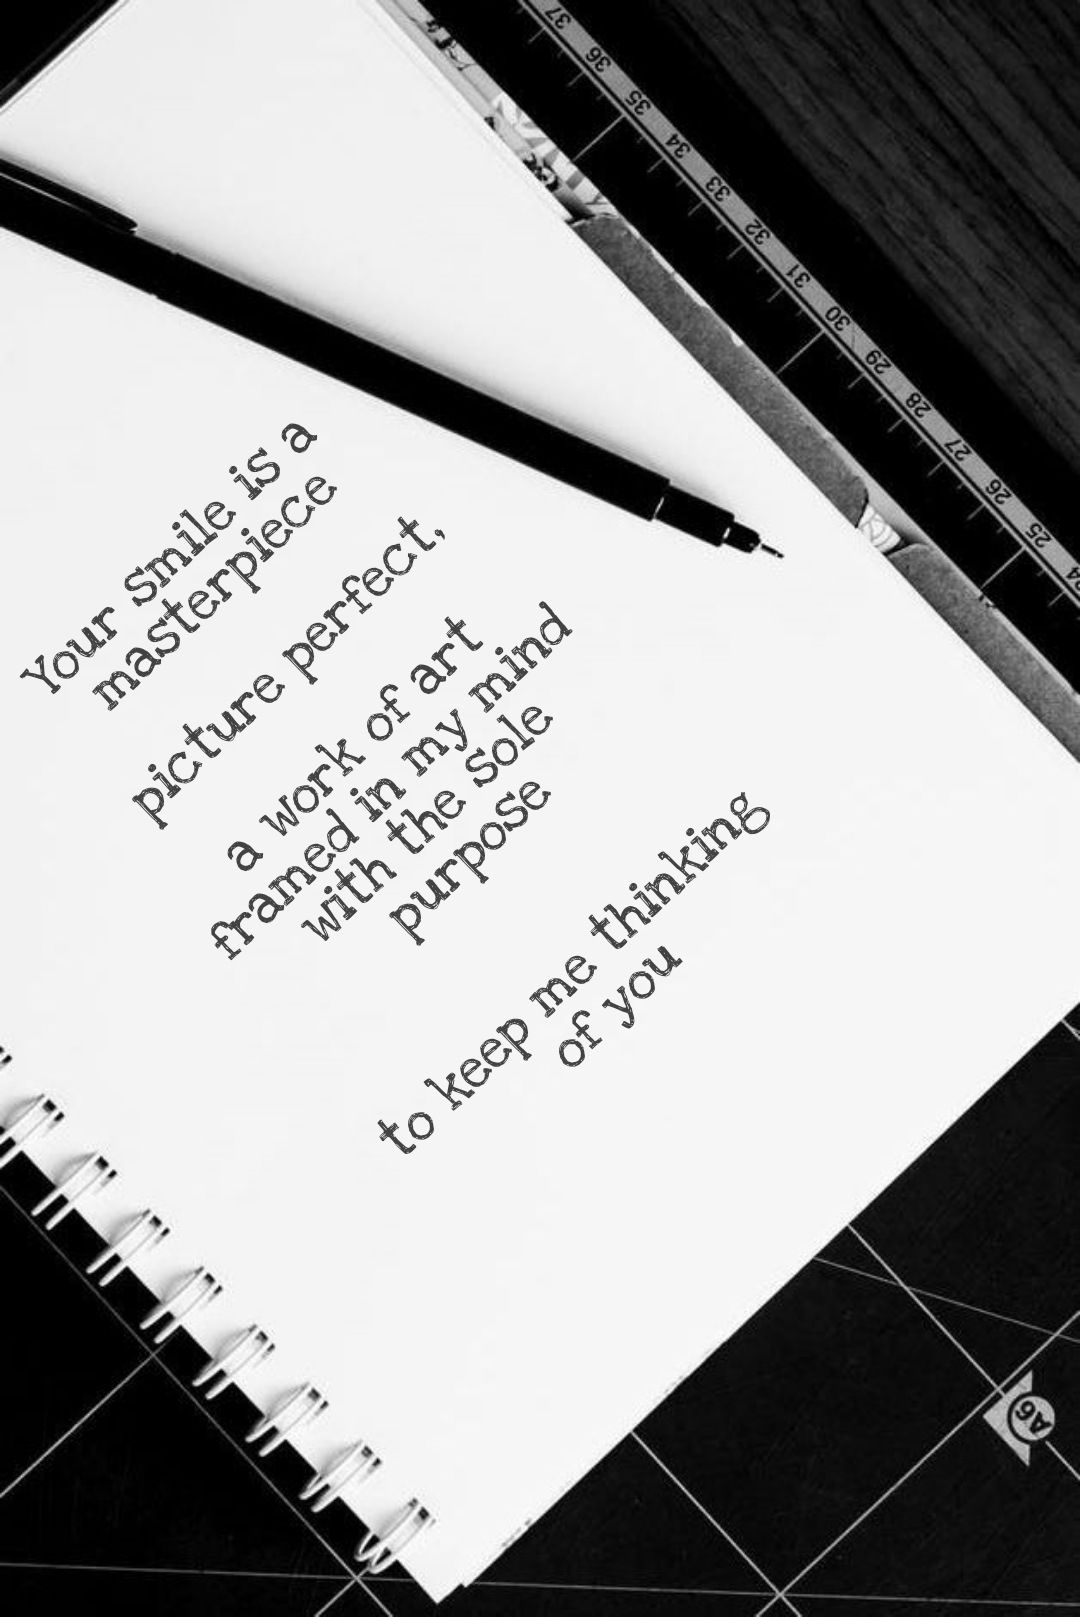 Your smile is a
masterpiece
picture perfect,
a work of art
framed in my mind
with the sole
purpose
to keep me thinking
of you
37
36
35
34
33
32
31
30
29
28
27
26
25
24
A6